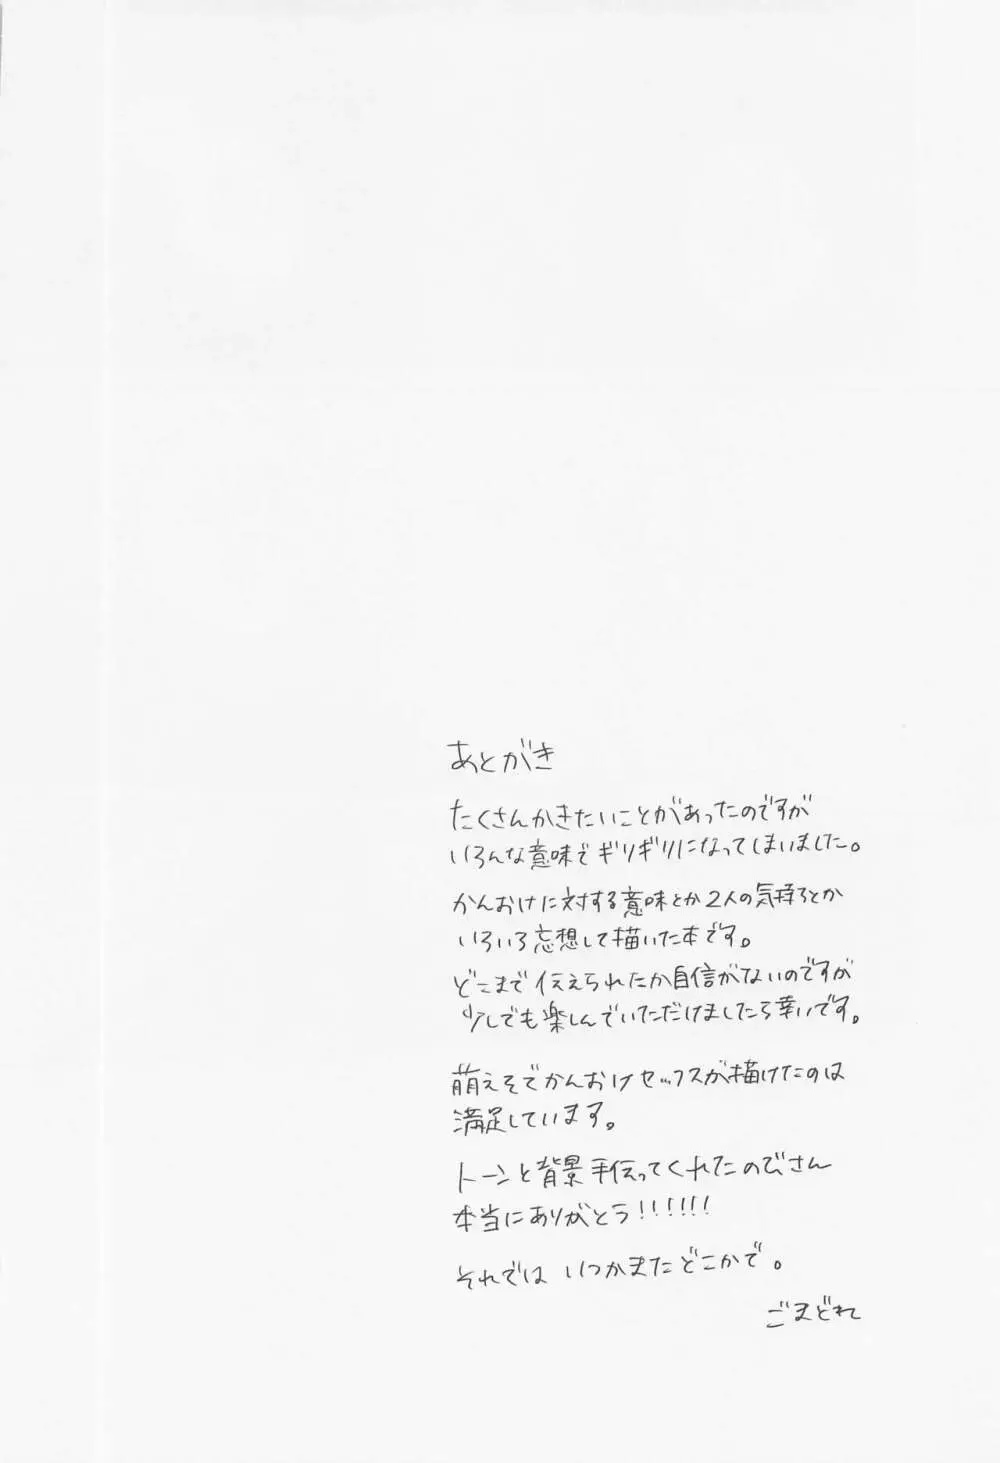 あとがき
たくさんかきたいことがあったのですが
いろんな意味でギリギリになってしまいました。
かんおけに対する意味とか2人の気持ちとか
いろいろ妄想して描いた本です。
どこまで伝えられたか自信がないのですが
少しでも楽しんでいただけましたら幸いです。
萌えそでかんおけセックスが描けたのは
満足しています。
トーンと背景手伝ってくれたのびさん
本当にありがとう!!!!!!
それではいつかまたどこかで。
ごまどれ